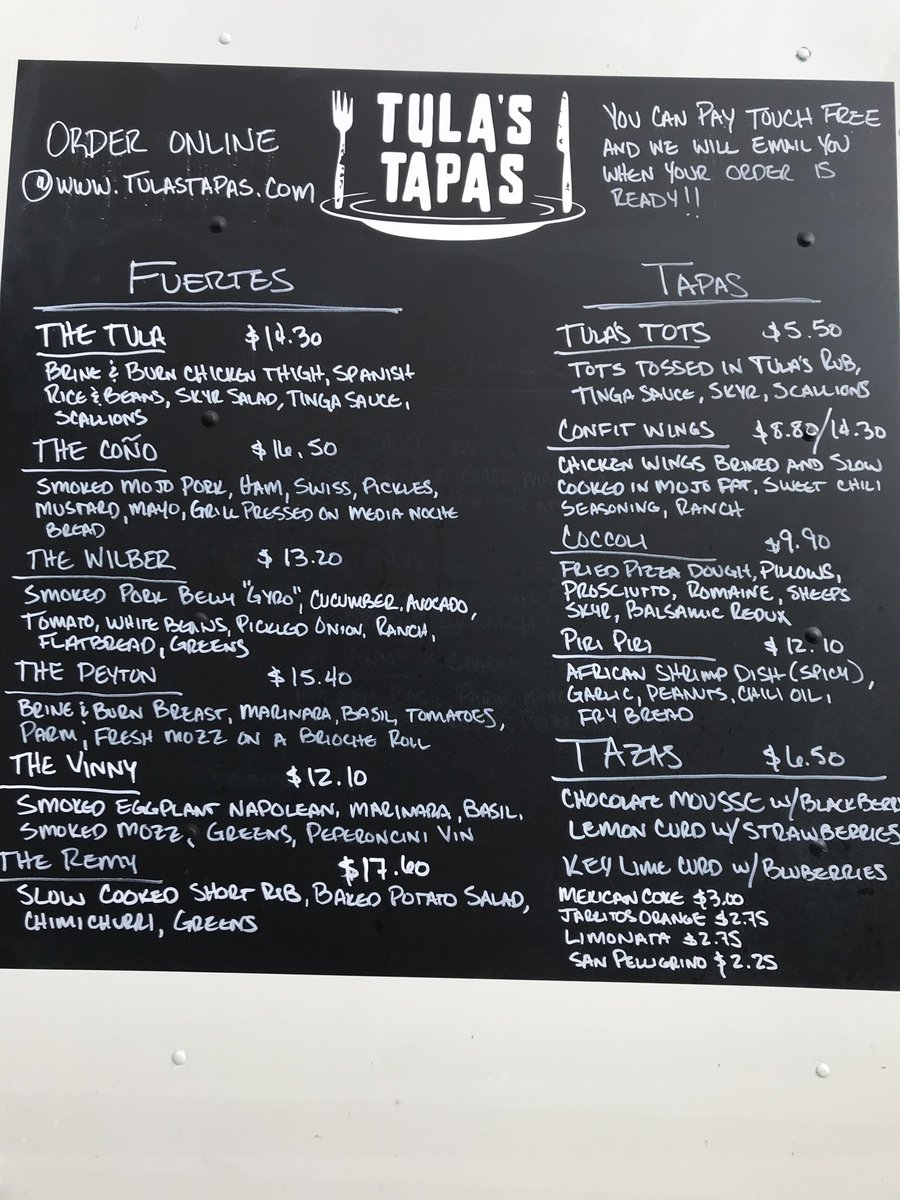 ORDER ONLINE
@WWW.TULASTAPAS.COM
TULA'S
TAPAS
YOU CAN PAY TOUCH FREE
AND WE WILL EMAIL YOU
WHEN YOUR ORDER IS
READY!!
FUERTES
THE TULA $14.30
BRINE & BURN CHICKEN THIGH, SPANISH
RICE & BEANS, SKYR SALAD, TINGA SAUCE,
SCALLIONS
THE COÑO $16.50
SMOKED MOJO PORK, HAM, SWISS, PICKLES,
MUSTARD, MAYO, GRILL PRESSED ON MEDIA NOCHE
BREAD
THE WILBER $13.20
SMOKED PORK BELLY "GYRO", CUCUMBER, AVOCADO,
TOMATO, WHITE BEANS, PICKLED ONION, RANCH,
FLATBREAD, GREENS
THE PEYTON $15.40
BRINE & BURN BREAST, MARINARA, BASIL, TOMATOES,
PARM, FRESH MOZZ ON A BRIOCHE ROLL
THE VINNY $12.10
SMOKED EGGPLANT NAPOLEAN, MARINARA, BASIL,
SMOKED MOZZ, GREENS, PEPERONCINI VIN
THE REMY $17.60
SLOW COOKED SHORT RIB, BAKED POTATO SALAD,
CHIMICHURRI, GREENS
TAPAS
TULA'S TOTS $5.50
TOTS TOSSED IN TULA'S RUB,
TINGA SAUCE, SKYR, SCALLIONS
CONFIT WINGS $8.80/14.30
CHICKEN WINGS BRINED AND SLOW
COOKED IN MOJO FAT, SWEET CHILI
SEASONING, RANCH
COCCOLI $9.90
FRIED PIZZA DOUGH, PILLOWS,
PROSCIUTTO, ROMAINE, SHEEPS
SKYR, BALSAMIC REDUX
PIRI PIRI $12.10
AFRICAN SHRIMP DISH (SPICY),
GARLIC, PEANUTS, CHILI OIL,
FRY BREAD
TAZAS $6.50
CHOCOLATE MOUSSE W/BLACKBERR
LEMON CURD W/STRAWBERRIES
KEY LIME CURD W/BLUBERRIES
MEXICAN COKE $3.00
JARLITOS ORANGE $2.75
LIMONATA $2.75
SAN PELLIGRINO $2.25